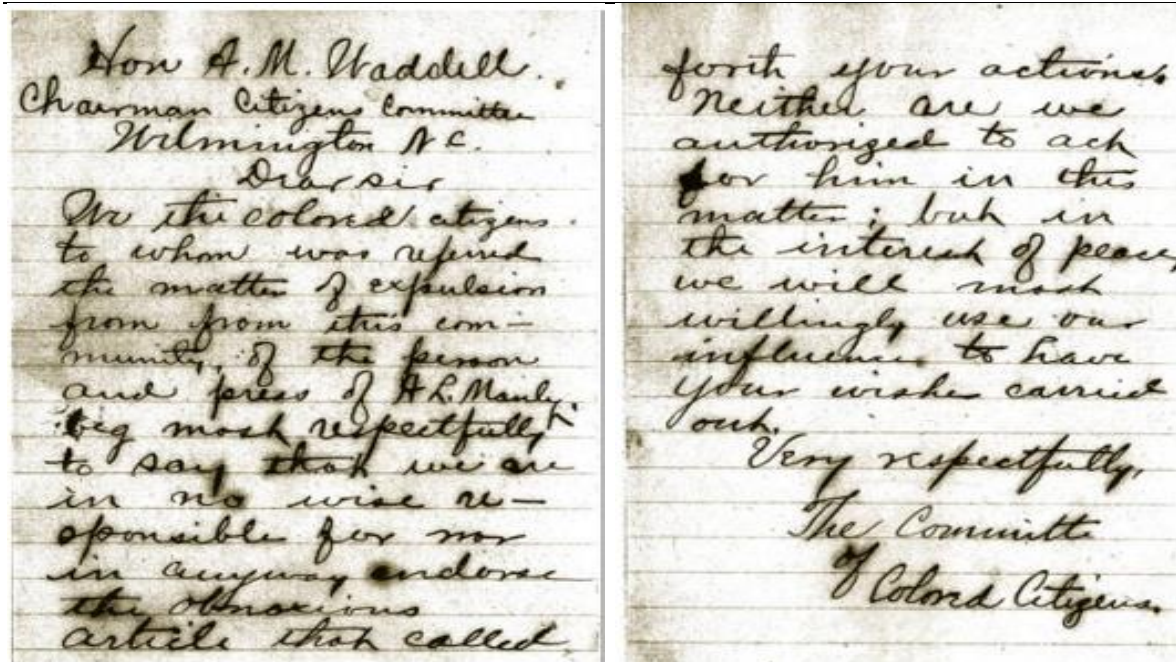 Hon A. M. Waddell.
Chairman Citizens Committee
Wilmington N C.
Dear sir
We the colored citizens
to whom was referred
the matter of expulsion
from from this com-
munity, of the person
and press of A L. Manly.
beg most respectfully
to say that we are
in no wise re-
sponsible for nor
in anyway endorse
the obnoxious
article that called
forth your actions.
Neither are we
authorized to act
for him in this
matter; but in
the interest of peace,
we will most
willingly use our
influence to have
your wishes carried
out.
Very respectfully,
The Committe
of
Colored Citizens.